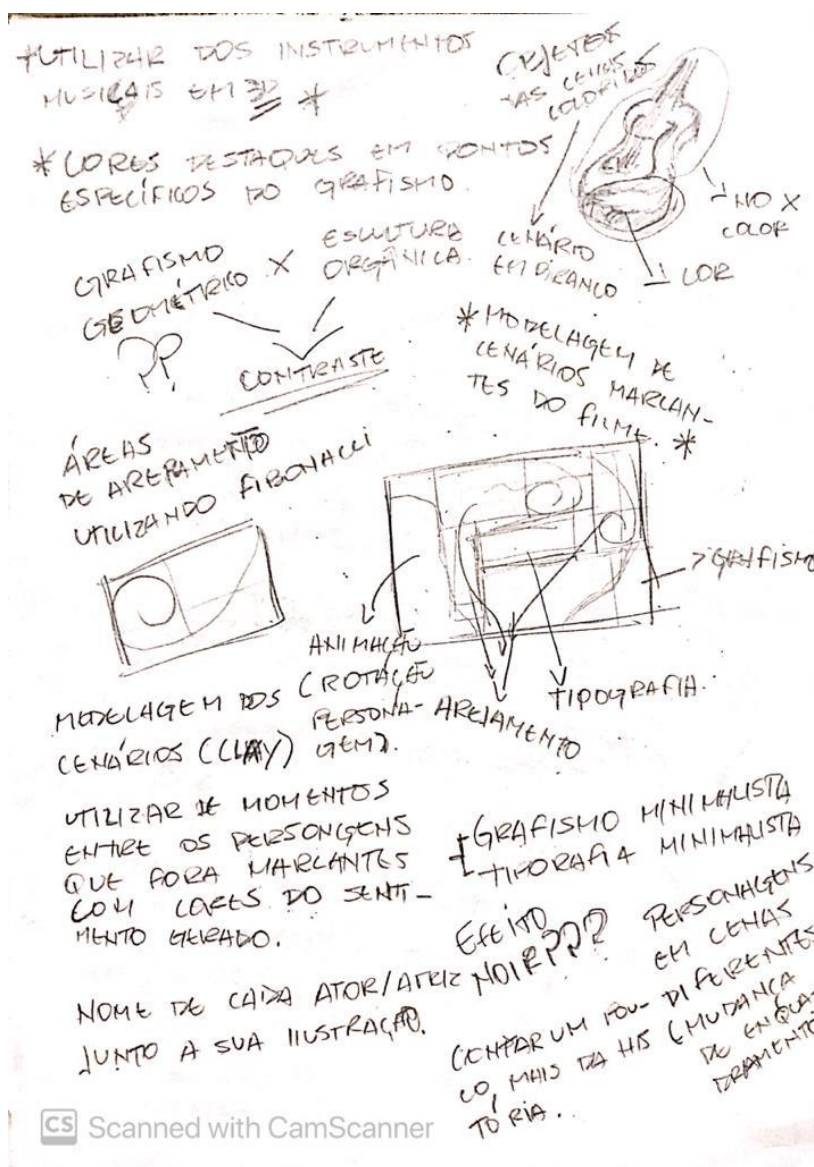 *UTILIZAR DOS INSTRUMENTOS
MUSICAIS EM 3D *
OBJETOS
NAS CENAS
COLORIDOS
*CORES DESTAQUES EM PONTOS
ESPECÍFICOS DO GRAFISMO.
NO X
COLOR
COR
CENÁRIO
EM BRANCO
GRAFISMO
GEOMÉTRICO X ESCULTURA
ORGÂNICA
??
CONTRASTE
*MODELAGEM DE
CENÁRIOS MARCAN-
TES DO FILME. *
ÁREAS
DE AREJAMENTO
UTILIZANDO FIBONACCI
GRAFISMO
ANIMAÇÃO
(ROTAÇÃO
PERSONA-
GEM).
AREJAMENTO
TIPOGRAFIA.
MODELAGEM DOS
CENÁRIOS (CLAY)
UTILIZAR DE MOMENTOS
ENTRE OS PERSONGENS
QUE FORA MARCANTES
COM CORES DO SENTI-
MENTO GERADO.
GRAFISMO MINIMALISTA
TIPORAFIA MINIMALISTA
EFEITO
NOIR???
PERSONAGENS
EM CENAS
DIFERENTES
(MUDANÇA
DE ENQUA-
DRAMENTO
NOME DE CADA ATOR/ATRIZ
JUNTO A SUA ILUSTRAÇÃO.
CONTAR UM POU-
CO, MAIS DA HIS
TÓRIA.
CS Scanned with CamScanner